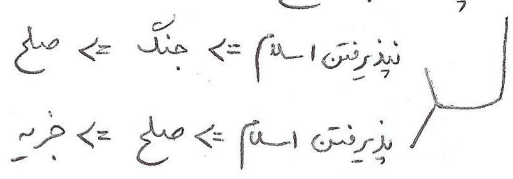 نپذیرفتن اسلام => جنگ => صلح
پذیرفتن اسلام => صلح => جزیه